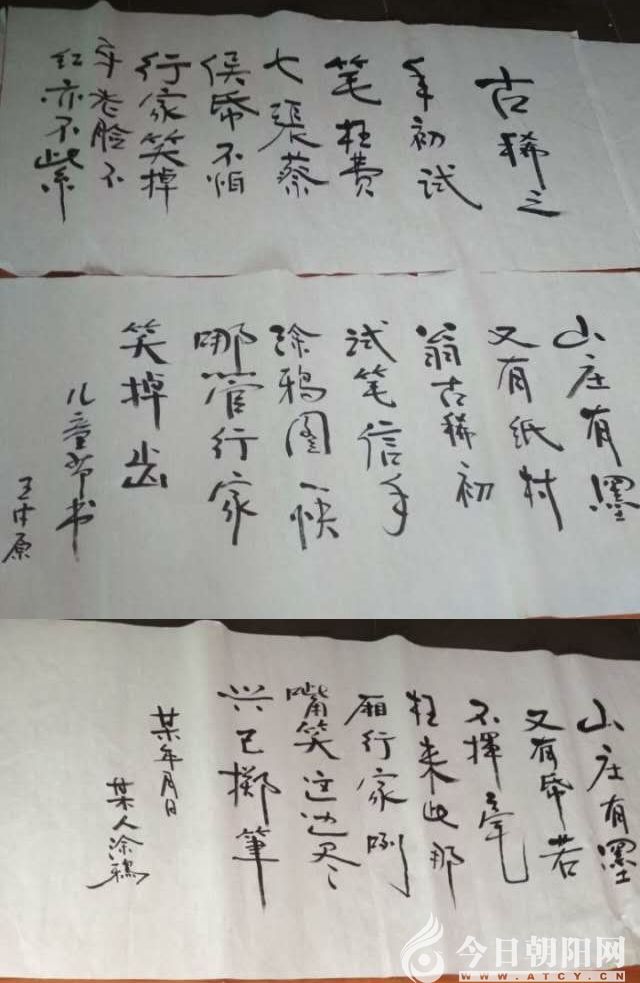 古稀之
年初试
笔枉费
七張蔡
侯帋不怕
行家笑掉
牙老脸不
红亦不紫
山庄有墨
又有纸村
翁古稀初
试笔信手
涂鸦图一快
哪管行家
笑掉齿
儿童节书
王中原
山庄有墨
又有帋若
不揮毫
枉来此那
厢行家咧
嘴笑这边尽
兴已掷筆
某年月日
某人涂鸦
今日朝阳网
WWW.ATCY.CN